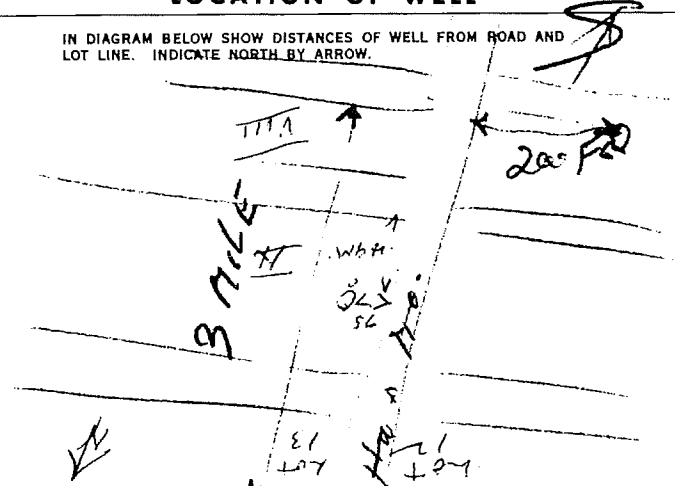 LOCATION OF WELL
IN DIAGRAM BELOW SHOW DISTANCES OF WELL FROM ROAD AND
LOT LINE. INDICATE NORTH BY ARROW.
VIII
200 F
3 MILE
IX
HGW.
OLD
75
N
LOT
13
LOT
12